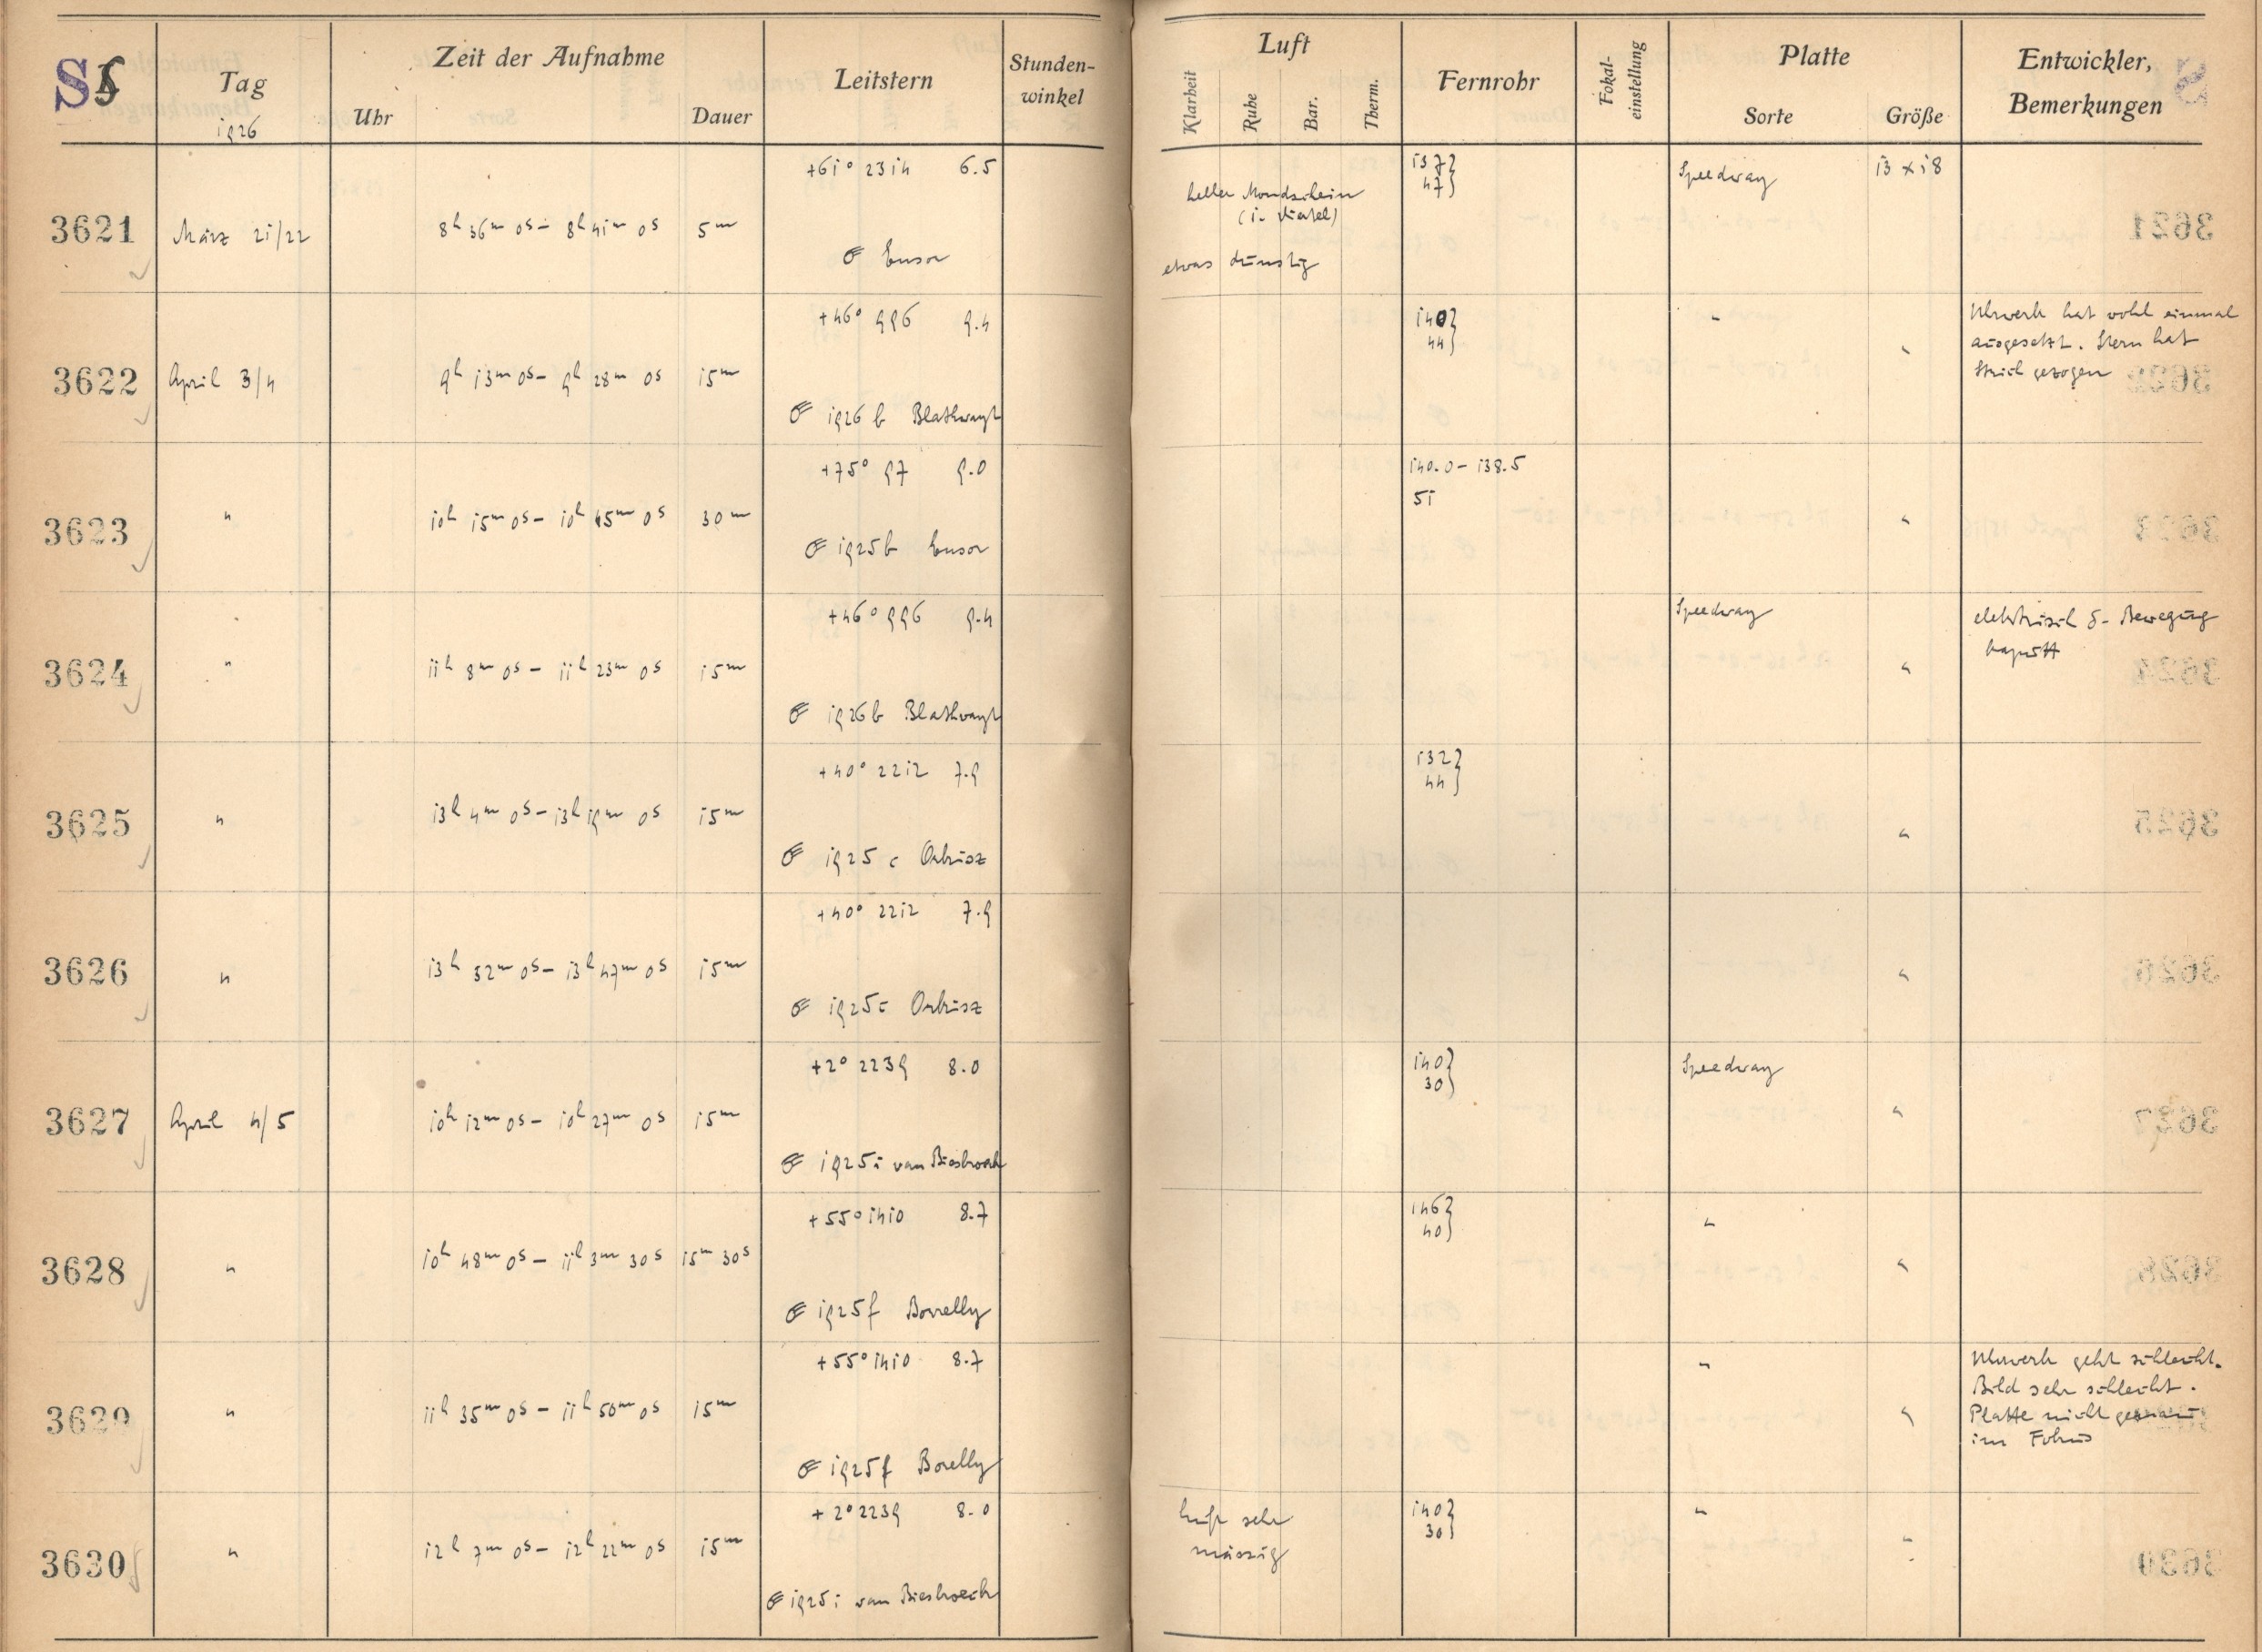 SS
Tag
1926
Zeit der Aufnahme
Uhr
Dauer
Leitstern
Stunden-
winkel
Luft
Klarheit
Ruhe
Bar.
Therm.
Fernrohr
Fokal-
einstellung
Platte
Sorte
Größe
Entwickler,
Bemerkungen
3621
März 21/22
8h 36m 0s – 8h 41m 0s
5m
+61° 2314 6.5
☄ Ensor
heller Mondschein
(1. Viertel)
etwas dunstig
137}
47}
Speedway
13 x 18
3622
April 3/4
9h 13m 0s – 9h 28m 0s
15m
+46° 996 9.4
☄ 1926 b Blathwayt
140}
44}
"
"
Uhrwerk hat wohl einmal
ausgesetzt. Stern hat
Strich gezogen
3623
"
10h 15m 0s – 10h 45m 0s
30m
+75° 97 9.0
☄ 1925 b Ensor
140.0 – 138.5
51
"
3624
"
11h 8m 0s – 11h 23m 0s
15m
+46° 996 9.4
☄ 1926 b Blathwayt
Speedway
"
elektrisch δ- Bewegung
kaputt
3625
"
13h 4m 0s – 13h 19m 0s
15m
+40° 2212 7.9
☄ 1925 c Orkisz
132}
44}
"
3626
"
13h 32m 0s – 13h 47m 0s
15m
+40° 2212 7.9
☄ 1925 c Orkisz
"
3627
April 4/5
10h 12m 0s – 10h 27m 0s
15m
+2° 2239 8.0
☄ 1925 i van Biesbroeck
140}
30}
Speedway
"
3628
"
10h 48m 0s – 11h 3m 30s
15m 30s
+55° 1410 8.7
☄ 1925 f Borrelly
146}
40}
"
"
3629
"
11h 35m 0s – 11h 50m 0s
15m
+55° 1410 8.7
☄ 1925 f Borelly
"
"
Uhrwerk geht schlecht.
Bild sehr schlecht.
Platte nicht genau
im Fokus
3630
"
12h 7m 0s – 12h 22m 0s
15m
+2° 2239 8.0
☄ 1925 i van Biesbroeck
Luft sehr
mässig
140}
30}
"
"